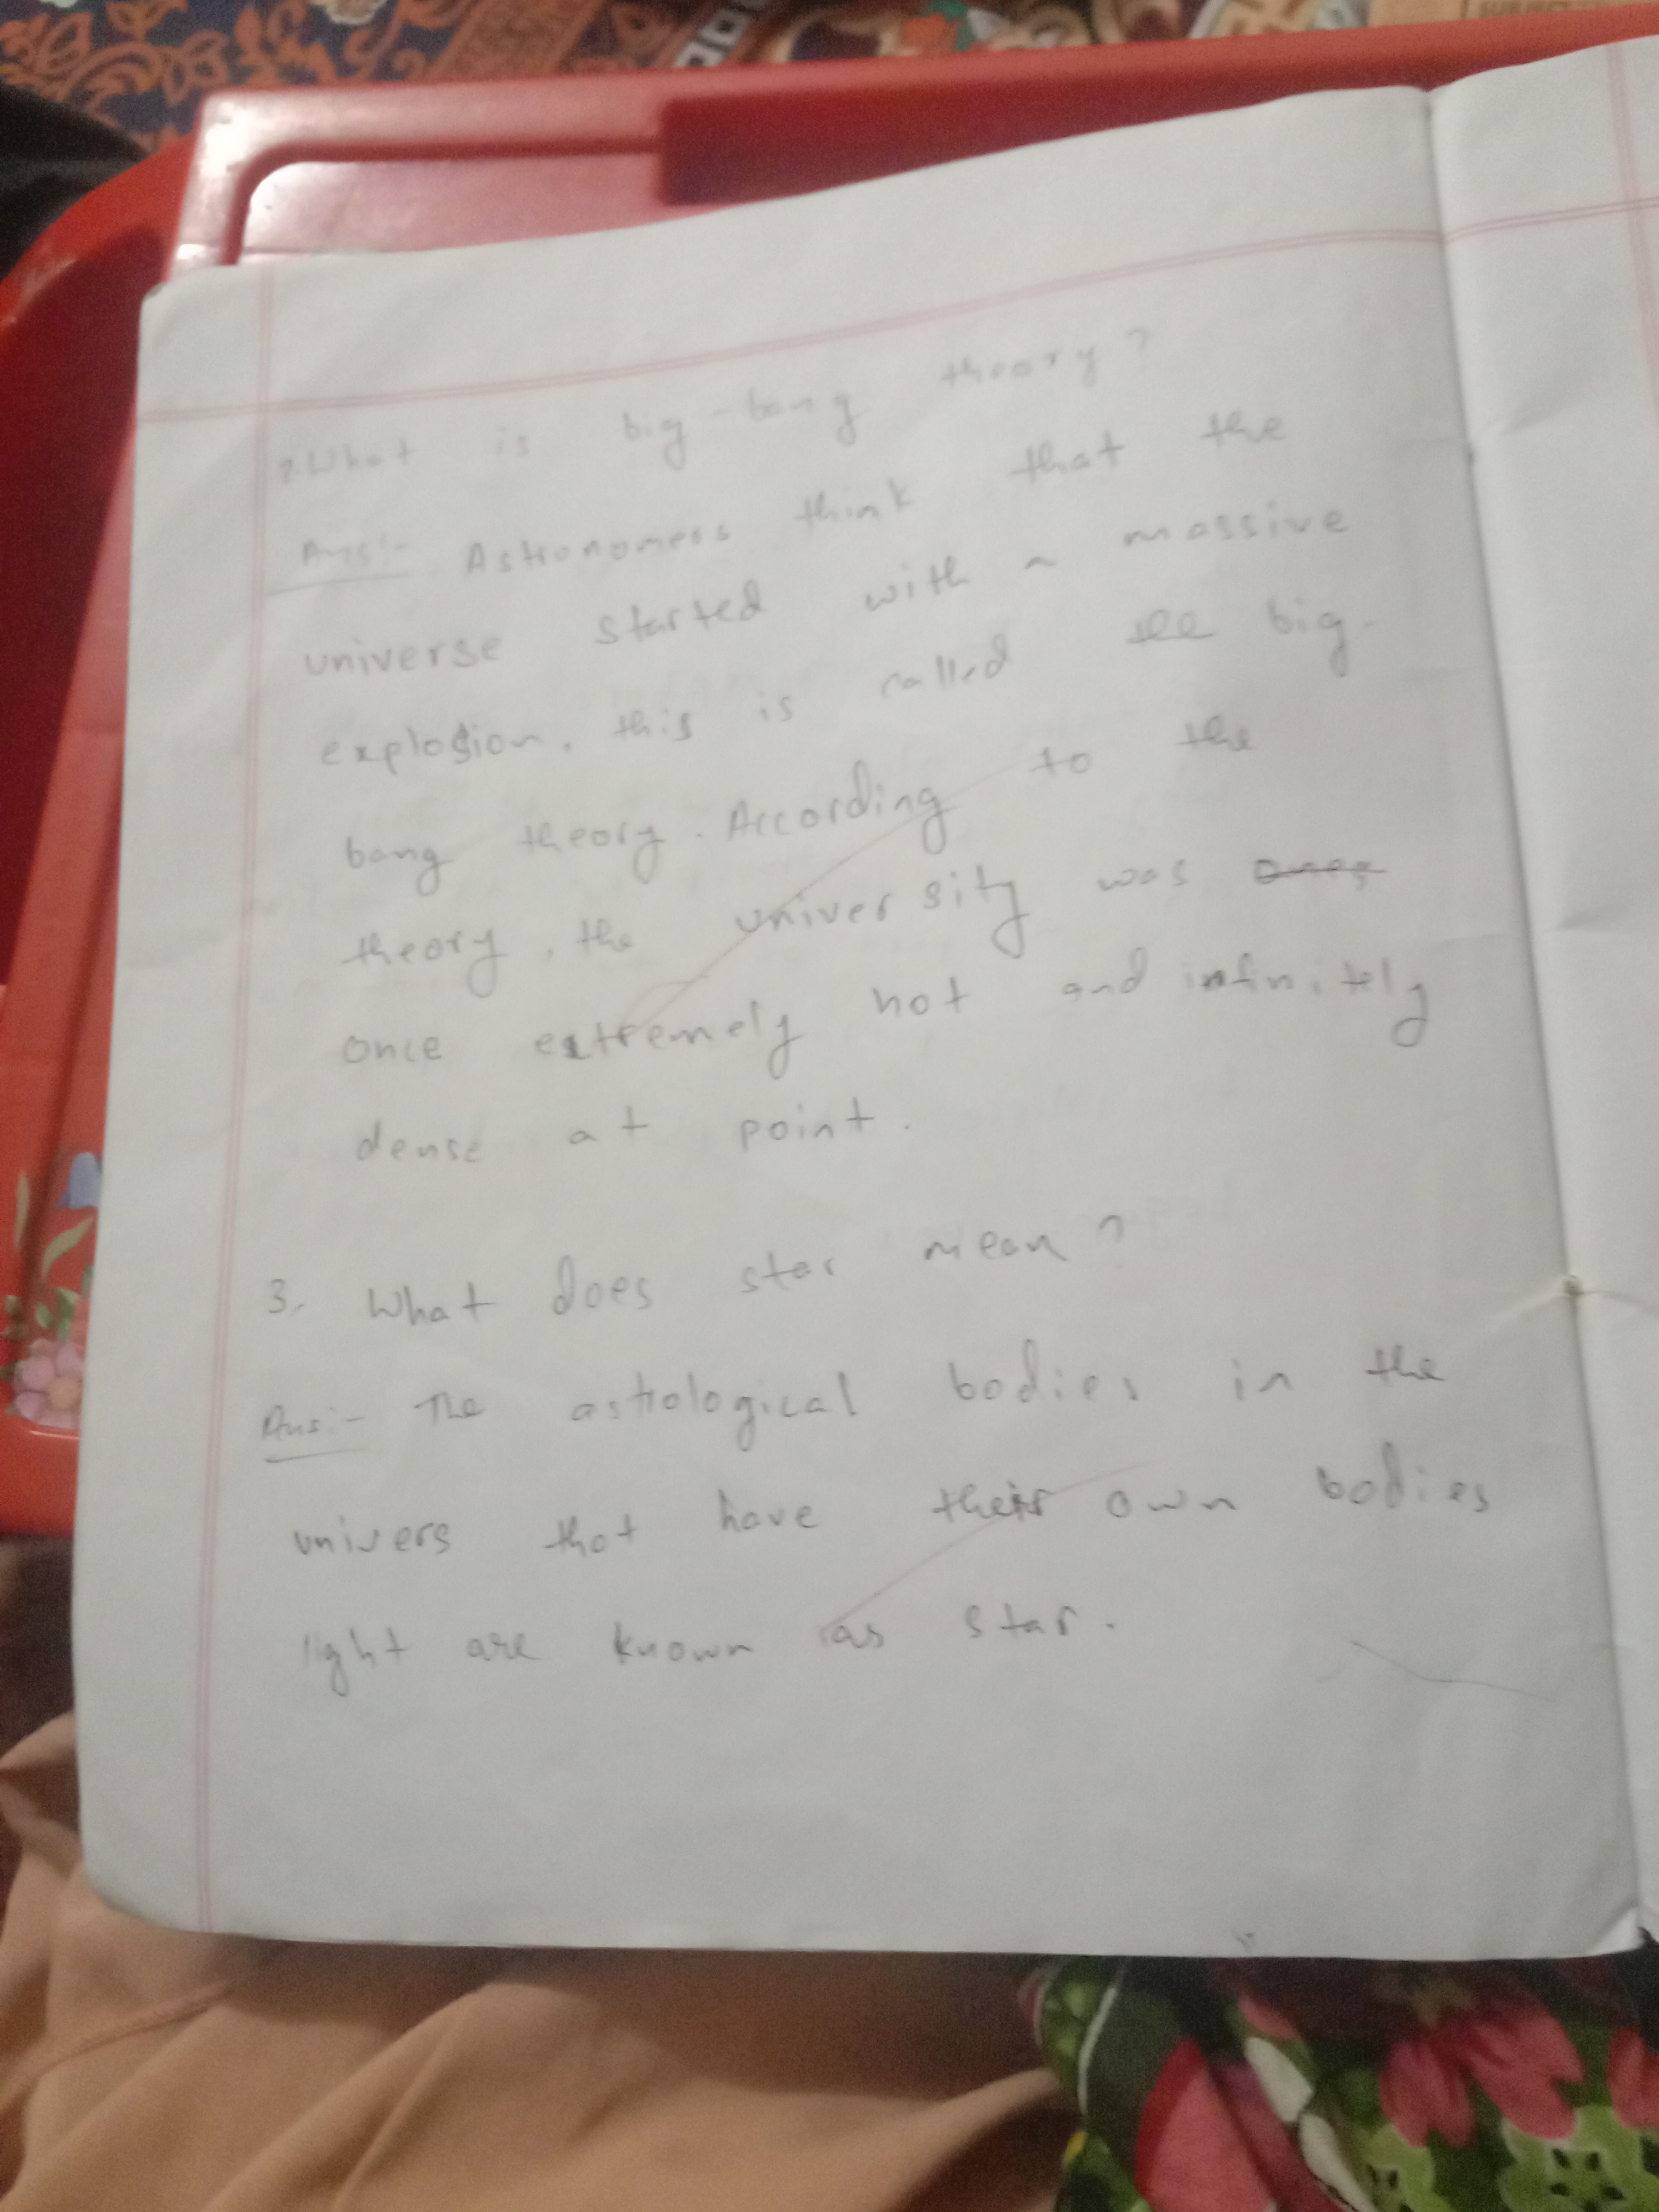 SUBJECT
2. What is big-bang theory?
Ans:- Astronomers think that the
universe started with a massive
explosion, this is called the big-
bang theory. According to the
theory, the university was ones
once extremely hot and infinitely
dense at point.
3. What does star mean?
Ans:- The astrological bodies in the
univers that have their own bodies
light are known as star.